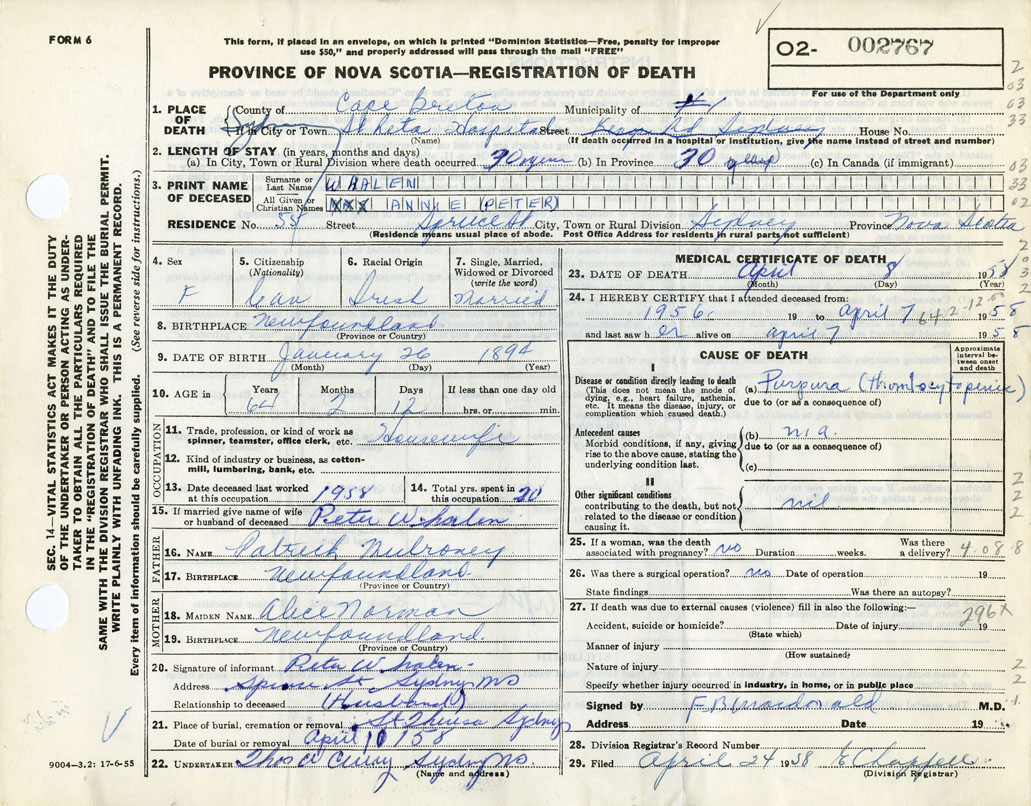 FORM 6
This form, if placed in an envelope, on which is printed "Dominion Statistics—Free, penalty for improper
use $50," and properly addressed will pass through the mail "FREE"
PROVINCE OF NOVA SCOTIA—REGISTRATION OF DEATH
02- 002767
For use of the Department only
1. PLACE OF DEATH
County of Cape Breton Municipality of #1
If in City or Town St Rita Hospital Street Sydney House No.
(Name) (If death occurred in a hospital or institution, give the name instead of street and number)
2. LENGTH OF STAY (in years, months and days)
(a) In City, Town or Rural Division where death occurred 30 years (b) In Province 30 years (c) In Canada (if immigrant)
3. PRINT NAME OF DECEASED
Surname or Last Name WHALEN
All Given or Christian Names ANNIE (PETER)
RESIDENCE No. 55 Street Spruce St City, Town or Rural Division Sydney Province Nova Scotia
(Residence means usual place of abode. Post Office Address for residents in rural parts not sufficient)
4. Sex F
5. Citizenship (Nationality) Can
6. Racial Origin Irish
7. Single, Married, Widowed or Divorced (write the word) Married
8. BIRTHPLACE Newfoundland
(Province or Country)
9. DATE OF BIRTH January 26 1894
(Month) (Day) (Year)
10. AGE in Years 64 Months 2 Days 12 If less than one day old hrs. or min.
OCCUPATION
11. Trade, profession, or kind of work as spinner, teamster, office clerk, etc. Housewife
12. Kind of industry or business, as cotton-mill, lumbering, bank, etc.
13. Date deceased last worked at this occupation 1958
14. Total yrs. spent in this occupation 20
15. If married give name of wife or husband of deceased Peter Whalen
FATHER
16. NAME Patrick Mulroney
17. BIRTHPLACE Newfoundland
(Province or Country)
MOTHER
18. MAIDEN NAME Alice Norman
19. BIRTHPLACE Newfoundland
(Province or Country)
20. Signature of informant Peter Whalen
Address Spruce St Sydney NS
Relationship to deceased (Husband)
21. Place of burial, cremation or removal St Theresa Sydney
Date of burial or removal April 10 / 58
22. UNDERTAKER Thos W Curry Sydney NS
(Name and address)
MEDICAL CERTIFICATE OF DEATH
23. DATE OF DEATH April 8 1958
(Month) (Day) (Year)
24. I HEREBY CERTIFY that I attended deceased from:
1956 19 to April 7 1958
64-2-12
and last saw her alive on april 7 1958
CAUSE OF DEATH
Approximate interval between onset and death
I
Disease or condition directly leading to death
(This does not mean the mode of dying, e.g., heart failure, asthenia, etc. It means the disease, injury, or complication which caused death.)
(a) Purpura (thrombocytopenic)
due to (or as a consequence of)
Antecedent causes
Morbid conditions, if any, giving rise to the above cause, stating the underlying condition last.
(b) n.a.
due to (or as a consequence of)
(c)
II
Other significant conditions
contributing to the death, but not related to the disease or condition causing it.
nil
25. If a woman, was the death associated with pregnancy? no Duration weeks. Was there a delivery? 4.08.8
26. Was there a surgical operation? no Date of operation 19
State findings Was there an autopsy?
27. If death was due to external causes (violence) fill in also the following:—
Accident, suicide or homicide? Date of injury 19
296X
(State which)
Manner of injury
(How sustained)
Nature of injury
Specify whether injury occurred in industry, in home, or in public place
Signed by F B Macdonald M.D.
Address Date 19
28. Division Registrar's Record Number
29. Filed April 24 1958 E Chappell
(Division Registrar)
SEC. 14—VITAL STATISTICS ACT MAKES IT THE DUTY
OF THE UNDERTAKER OR PERSON ACTING AS UNDER-
TAKER TO OBTAIN ALL THE PARTICULARS REQUIRED
IN THE "REGISTRATION OF DEATH" AND TO FILE THE
SAME WITH THE DIVISION REGISTRAR WHO SHALL ISSUE THE BURIAL PERMIT.
WRITE PLAINLY WITH UNFADING INK. THIS IS A PERMANENT RECORD.
Every item of information should be carefully supplied. (See reverse side for instructions.)
9004—3.2: 17-6-55
2
03
03
33
03
33
02
2
0
3
2
2
2
2
2
2
1